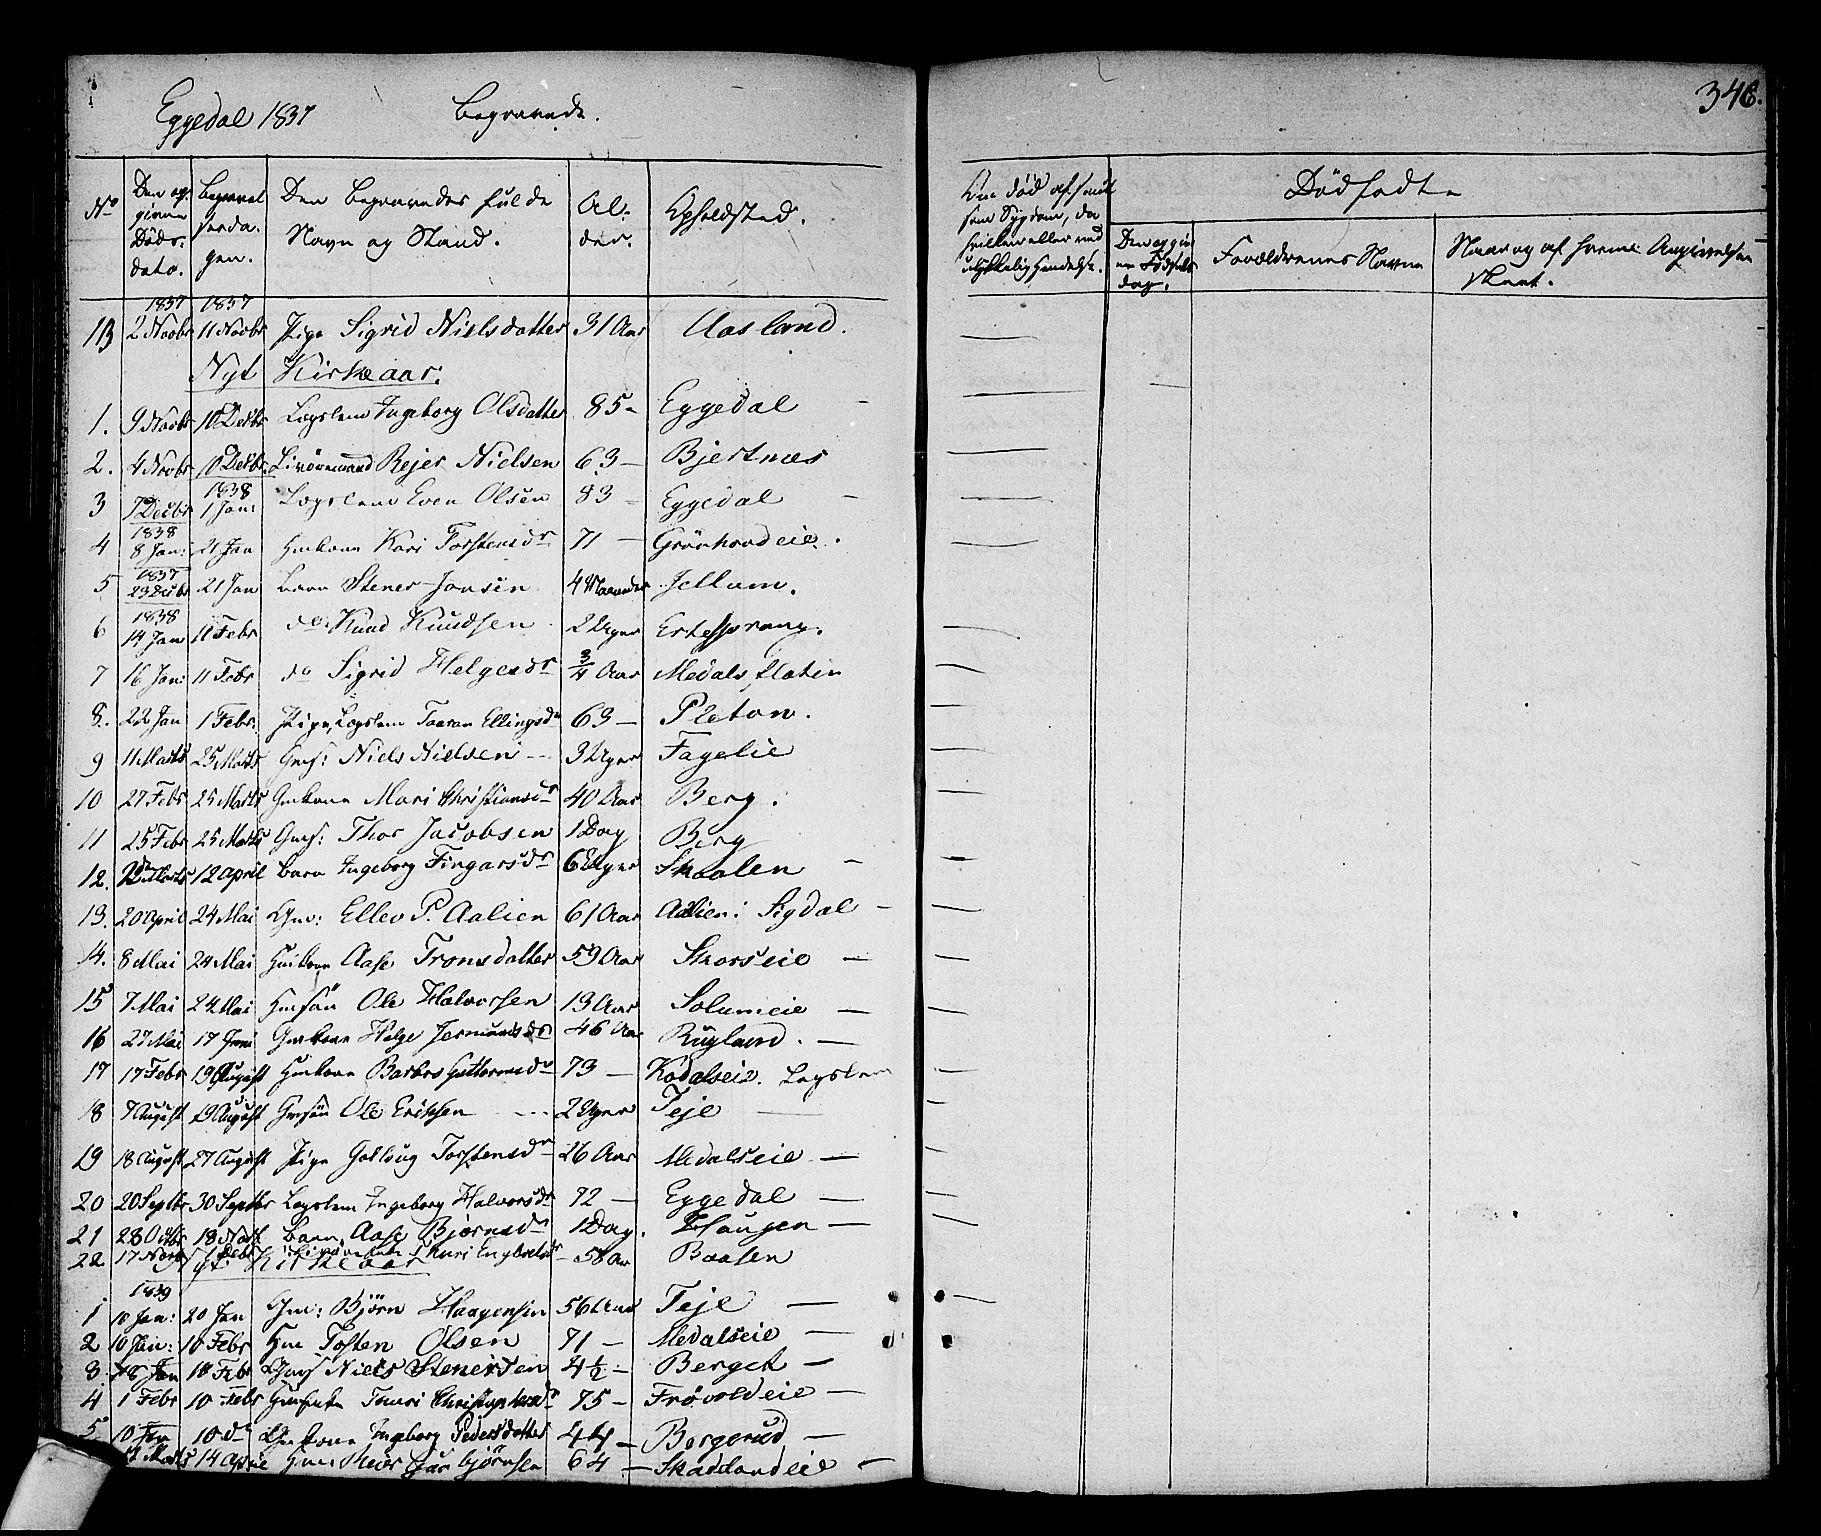 Eggedal 1837 Begravede.
346.
No Den opgivne Døds-dato. Begravelsesdagen. Den Begravedes fulde Navn og Stand. Alder. Opholdsted.
Om død af smitsom Sygdom, da hvilken eller ved ulykkelig Hendelse.
Dødfødte
Den opgivne Fødselsdag. Forældrenes Navne Naar og af hvem Angivelsen skeet.
1837 1837
13 2 Novbr 11 Novbr Pige Sigrid Nielsdatter 31 Aar Aasland.
Nyt Kirkeaar.
1. 9 Novbr 10 Decbr Lægslem Ingeborg Olsdatter 85 - Eggedal
2. 4 Novbr 10 Decbr Livøremand Rejer Nielsen 63 - Bjertnæs
1838
3 7 Decbr 1 Jan: Lægslem Even Olsen 83 - Eggedal
1838
4 8 Jan: 21 Jan Hmkone Kari Torstensdr 71 - Grønhovdeie.
1837
5 23 Decbr 21 Jan Barn Stener Jonsen 4 Maaneder Jellum.
1838
6 14 Jan 11 Febr do Knud Knudsen 2 Uger Ertesprang.
7 16 Jan: 11 Febr do Sigrid Helgesdr 3/4 Aar Medalsflaten
8. 22 Jan 1 Febr. Pige, Lægslem Taaran Ellingsdr 63 - Pleton.
9 11 Marts 25 Marts Gms: Niels Nielsen 3 Uger Fagelie
10 27 Febr 25 Marts Gmkone Mari Christiansdr 40 Aar Berg.
11 25 Febr 25 Marts Gms: Thor Jacobsen 1 Dag Berg
12. Marts 12 April Barn Ingeborg Fingarsdr 6 Uger Skaalen
13. 20 April 24 Mai Gm: Ellev P. Aalien 61 Aar Aalien: Sigdal
14. 8 Mai 24 Mai Hmkone Aase Tronsdatter 59 Aar Skorseie
15 7 Mai 24 Mai Hmsøn Ole Halvorsen 13 Aar Solumeie
16 27 Mai 17 Juni Gmkone Helge Jermundsdr 46 Aar Rugland.
17 17 Febr 19 August Hmkone Barbro Guttormsdr 73 - Kodalseie. Lægslem
18 7 August 19 August Gmsøn Ole Ericksen 2 Uger Teje
19 18 August 27 August Pige Gollaug Torstensdr 26 Aar Medalseie
20 20 Septbr 30 Septbr Lægslem Ingeborg Halvorsdr 72 - Eggedal
21 28 Octbr 18 Novb Barn Aase Bjørnsdr 1 Dag. Haugen
22 17 Novb Decbr Kari Engebretsdr 58 Aar Baasen
Nyt Kirkeaar
1839
1 10 Jan: 20 Jan Gm: Bjørn Haagensen 56 Aar Teje
2 10 Jan: 10 Febr Hm Tosten Olsen 71 - Medalseie
3 18 Jan 10 Febr Gms Niels Stenersen 4½ - Berget
4 1 Febr 10 Febr Hmenke Touri Christophersdr 75 - Frøvoldeie
5 10 Jan 10 do Gmkone Ingeborg Pedersdatter 44 - Bergerud
Marts 14 April Hm Reier Gurbjørnsen 64 - Skadlandeie